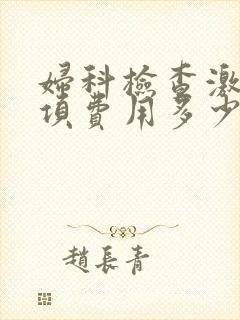 婦科檢查激
項費用多少
趙長青